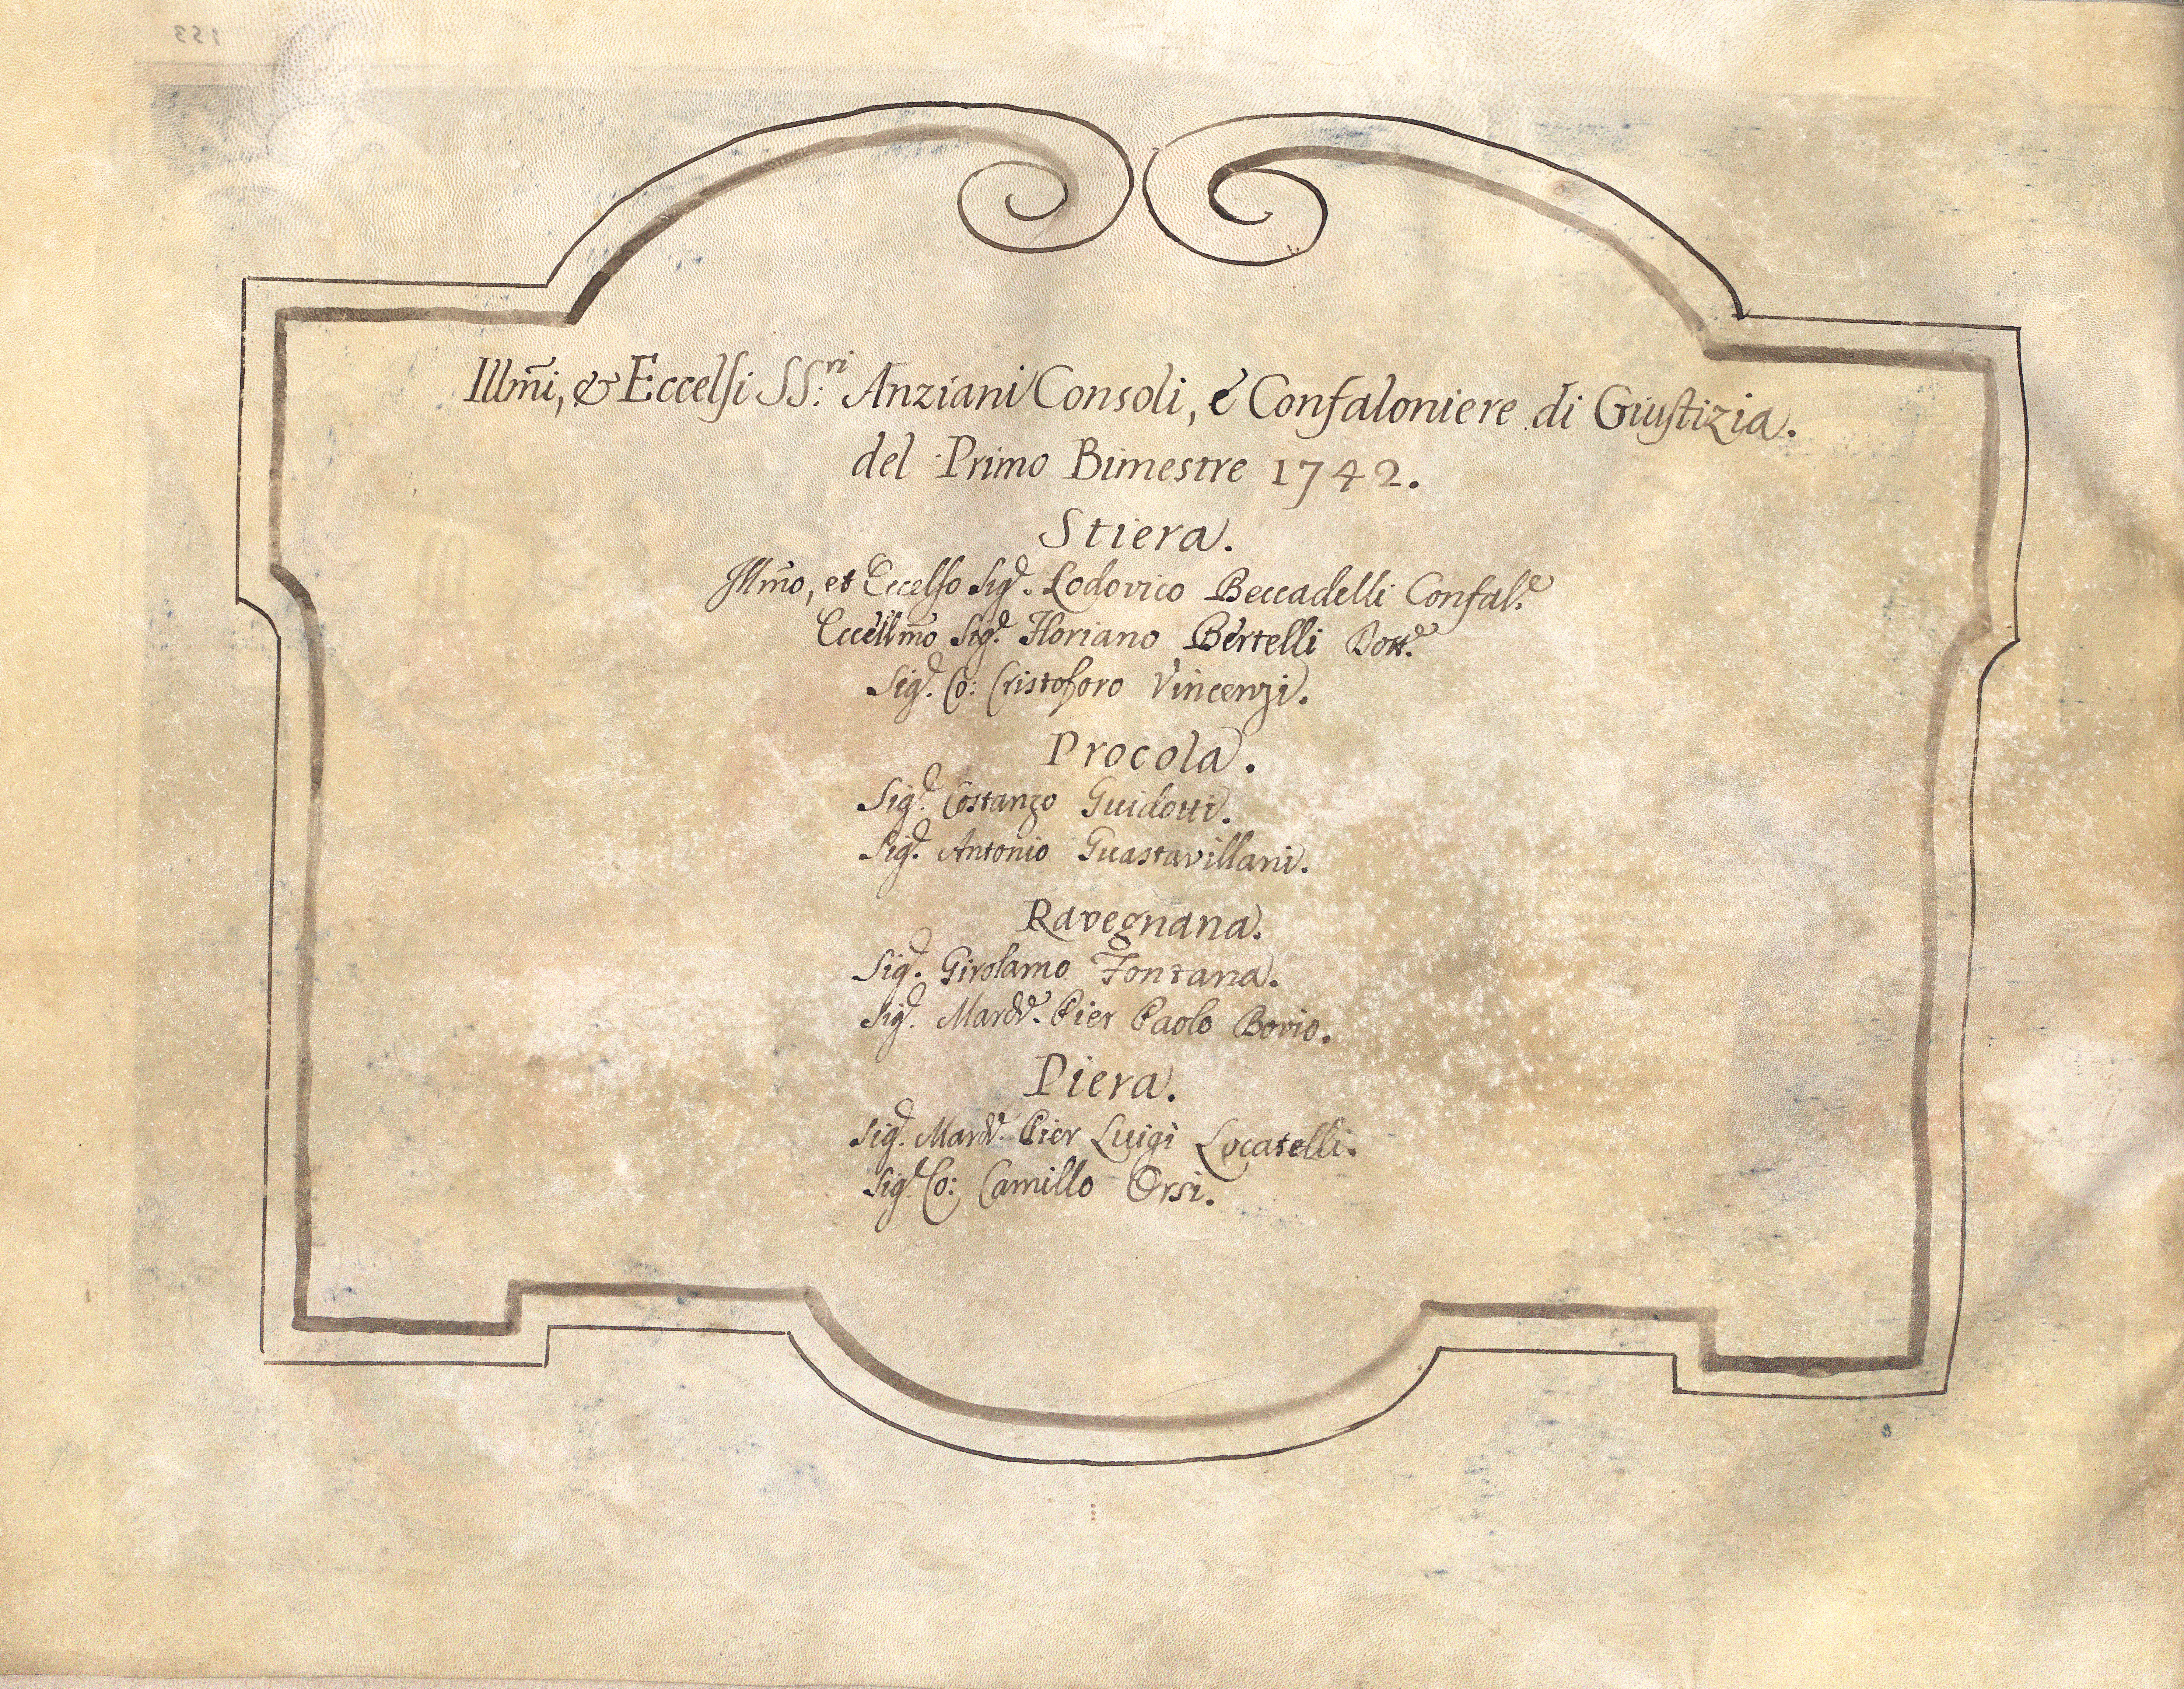 Illm̃i, & Eccelſi SS:ri Anziani Consoli, è Confaloniere di Giuſtizia.
del Primo Bimestre 1742.
Stiera.
Illm̃o, et Eccelſo Sigr. Lodovico Beccadelli Confalre
Eccellm̃o Sigr. Floriano Bertelli Dottre
Sigr. Co: Cristoforo Vincenzi.
Procola.
Sigr. Costanzo Guidotti.
Sigr. Antonio Guastavillani.
Ravegnana.
Sigr. Girolamo Fontana.
Sigr. Pier Paolo Bovio.
Piera.
Sigr. Pier Luigi Locatelli.
Sigr. Co: Camillo Orsi.